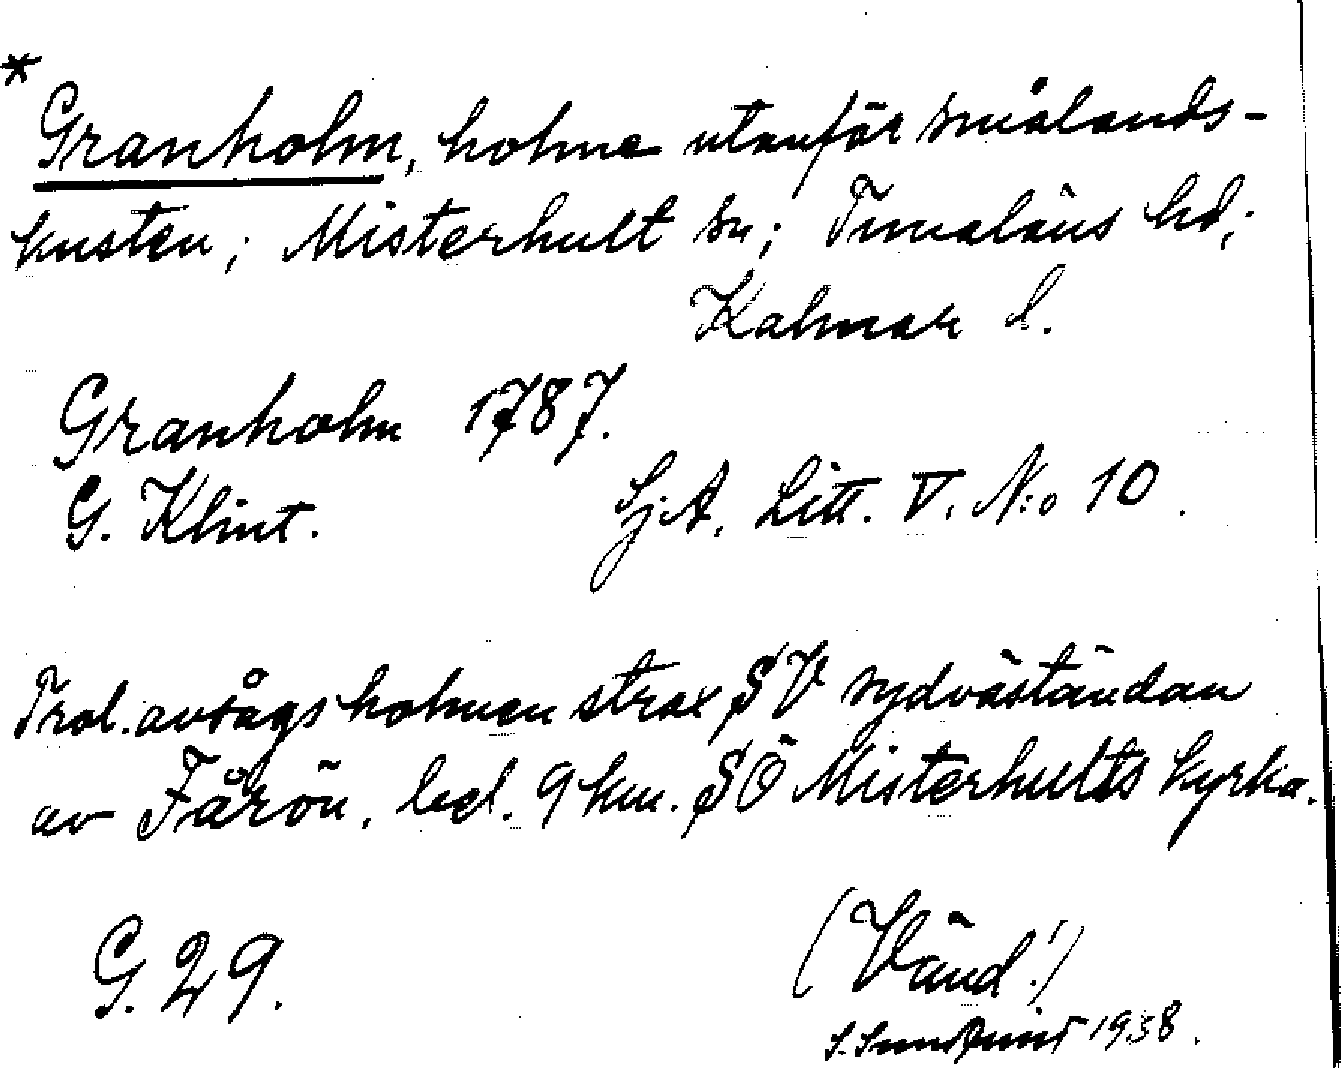 * Granholm, holme utanför smålands-
kusten; Misterhult sn; Tunaläns hd;
Kalmar l.
Granholm 1787.
G. Klint. Sj.A. Litt. V. N:o 10.
Trol. avsågs holmen strax SV sydväständan
av Fårön, bel. 9 km. SÖ Misterhults kyrka.
G. 29. (Vänd!)
S. 1938.